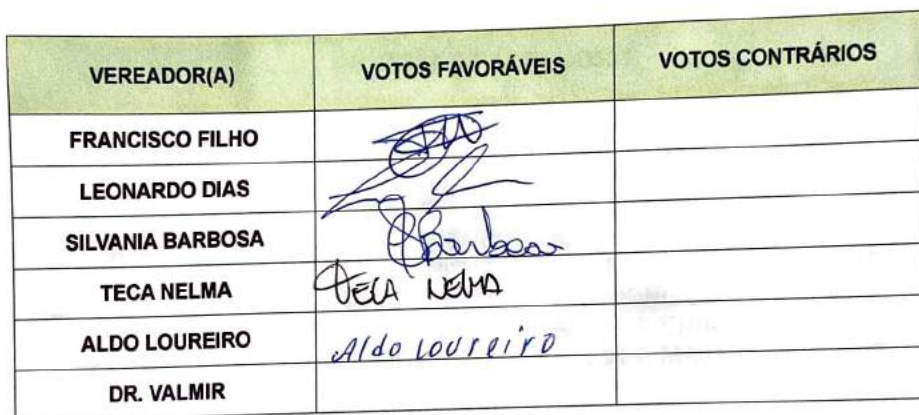 VEREADOR(A) VOTOS FAVORÁVEIS VOTOS CONTRÁRIOS
FRANCISCO FILHO
LEONARDO DIAS
SILVANIA BARBOSA SBarbosa
TECA NELMA TECA NELMA
ALDO LOUREIRO Aldo Loureiro
DR. VALMIR